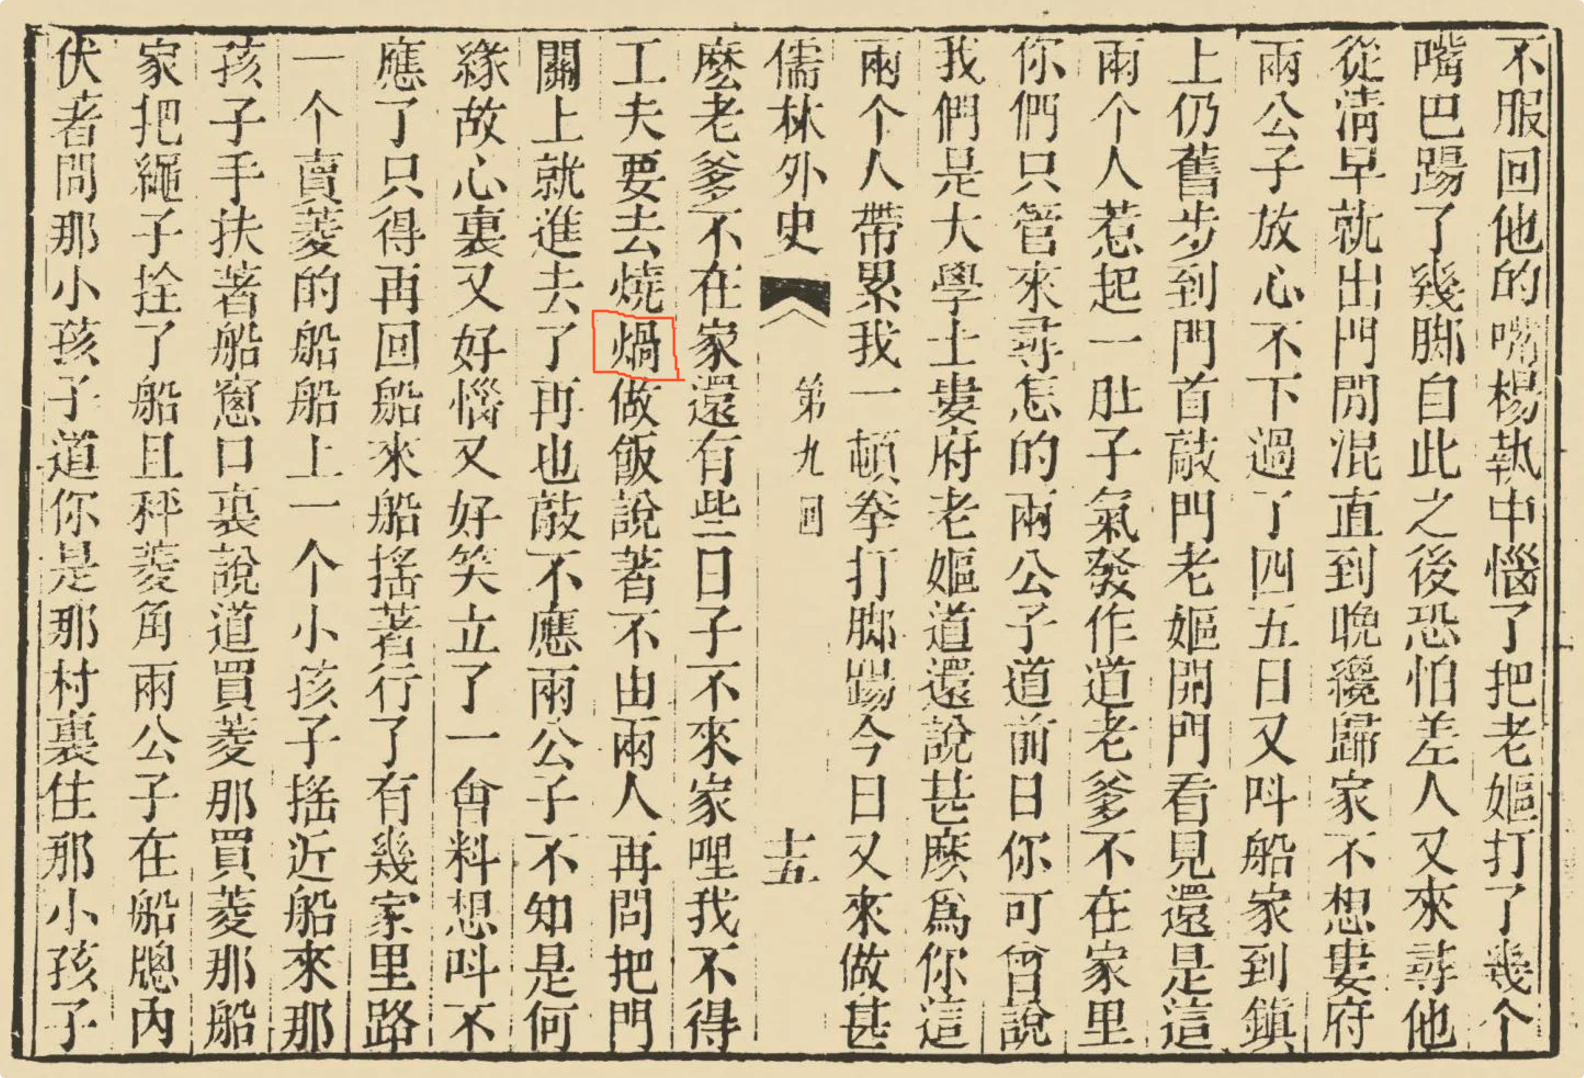 不服回他的嘴楊執中惱了把老嫗打了幾个
嘴巴踢了幾脚自此之後恐怕差人又來尋他
從清早就出門閒混直到晚纔歸家不想婁府
兩公子放心不下過了四五日又呌船家到鎮
上仍舊步到門首敲門老嫗開門看見還是這
兩个人惹起一肚子氣發作道老爹不在家里
你們只管來尋怎的兩公子道前日你可曾說
我們是大學士婁府老嫗道還說甚麽爲你這
兩个人帶累我一頓拳打脚踢今日又來做甚
儒林外史 第九回 十五
麽老爹不在家還有些日子不來家哩我不得
工夫要去燒煱做飯說著不由兩人再問把門
關上就進去了再也敲不應兩公子不知是何
緣故心裏又好惱又好笑立了一會料想呌不
應了只得再回船來船搖著行了有幾家里路
一个賣菱的船船上一个小孩子搖近船來那
孩子手扶著船窻口裏說道買菱那買菱那船
家把繩子拴了船且秤菱角兩公子在船牕內
伏著問那小孩子道你是那村裏住那小孩子